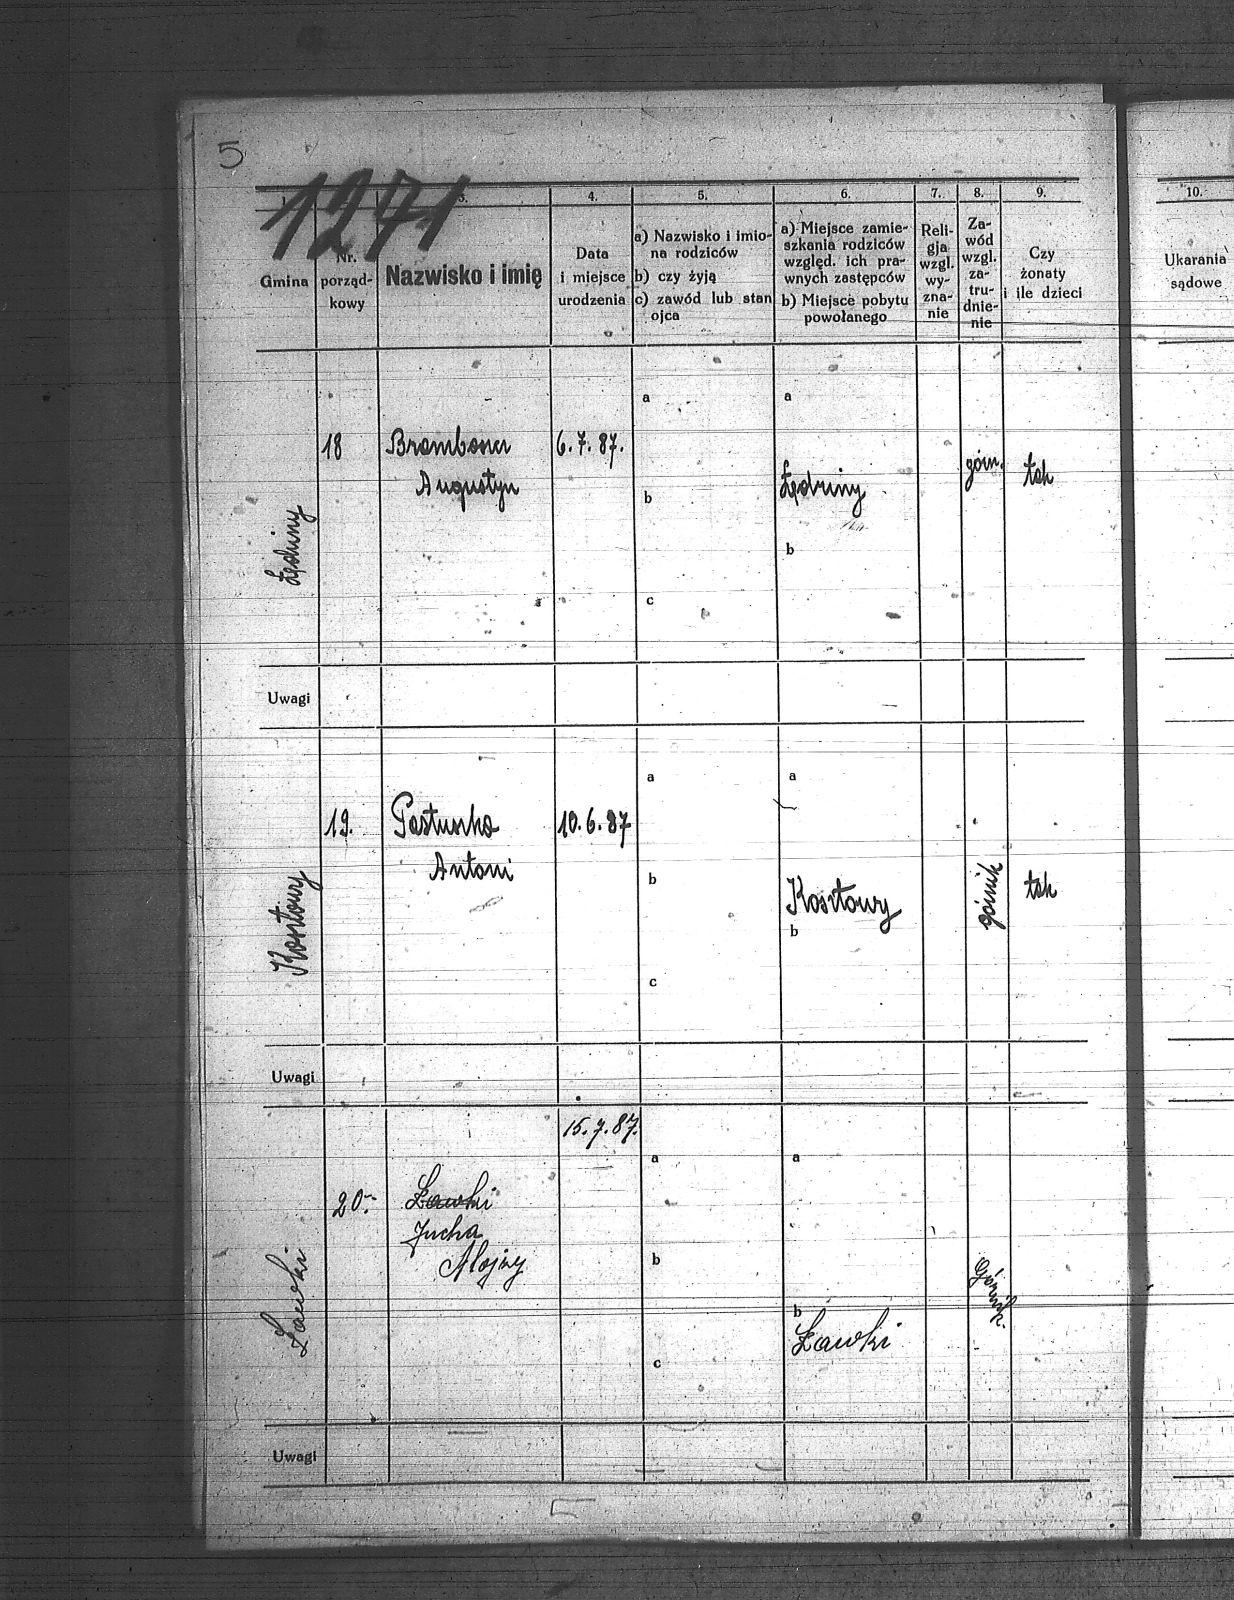 5
1271
1. 3. 4. 5. 6. 7. 8. 9. 10.
Gmina
Nr.
porząd-
kowy
Nazwisko i imię
Data
i miejsce
urodzenia
a) Nazwisko i imio-
na rodziców
b) czy żyją
c) zawód lub stan
ojca
a) Miejsce zamie-
szkania rodziców
względ. ich pra-
wnych zastępców
b) Miejsce pobytu
powołanego
Reli-
gja
wzgl.
wy-
zna-
nie
Za-
wód
wzgl.
za-
tru-
dnie-
nie
Czy
żonaty
i ile dzieci
Ukarania
sądowe
Lędziny
18
Brombosz
Augustyn
6.7.87.
a
b
c
a
Lędziny
b
górn.
tak
Uwagi
Kosztowy
19.
Pastuszka
Antoni
10.6.87
a
b
c
a
Kosztowy
b
górnik
tak
Uwagi
Ławki
20.
Ławki
Jucha
Alojzy
15.7.87.
a
b
c
a
b
Ławki
Górnik.
Uwagi
5